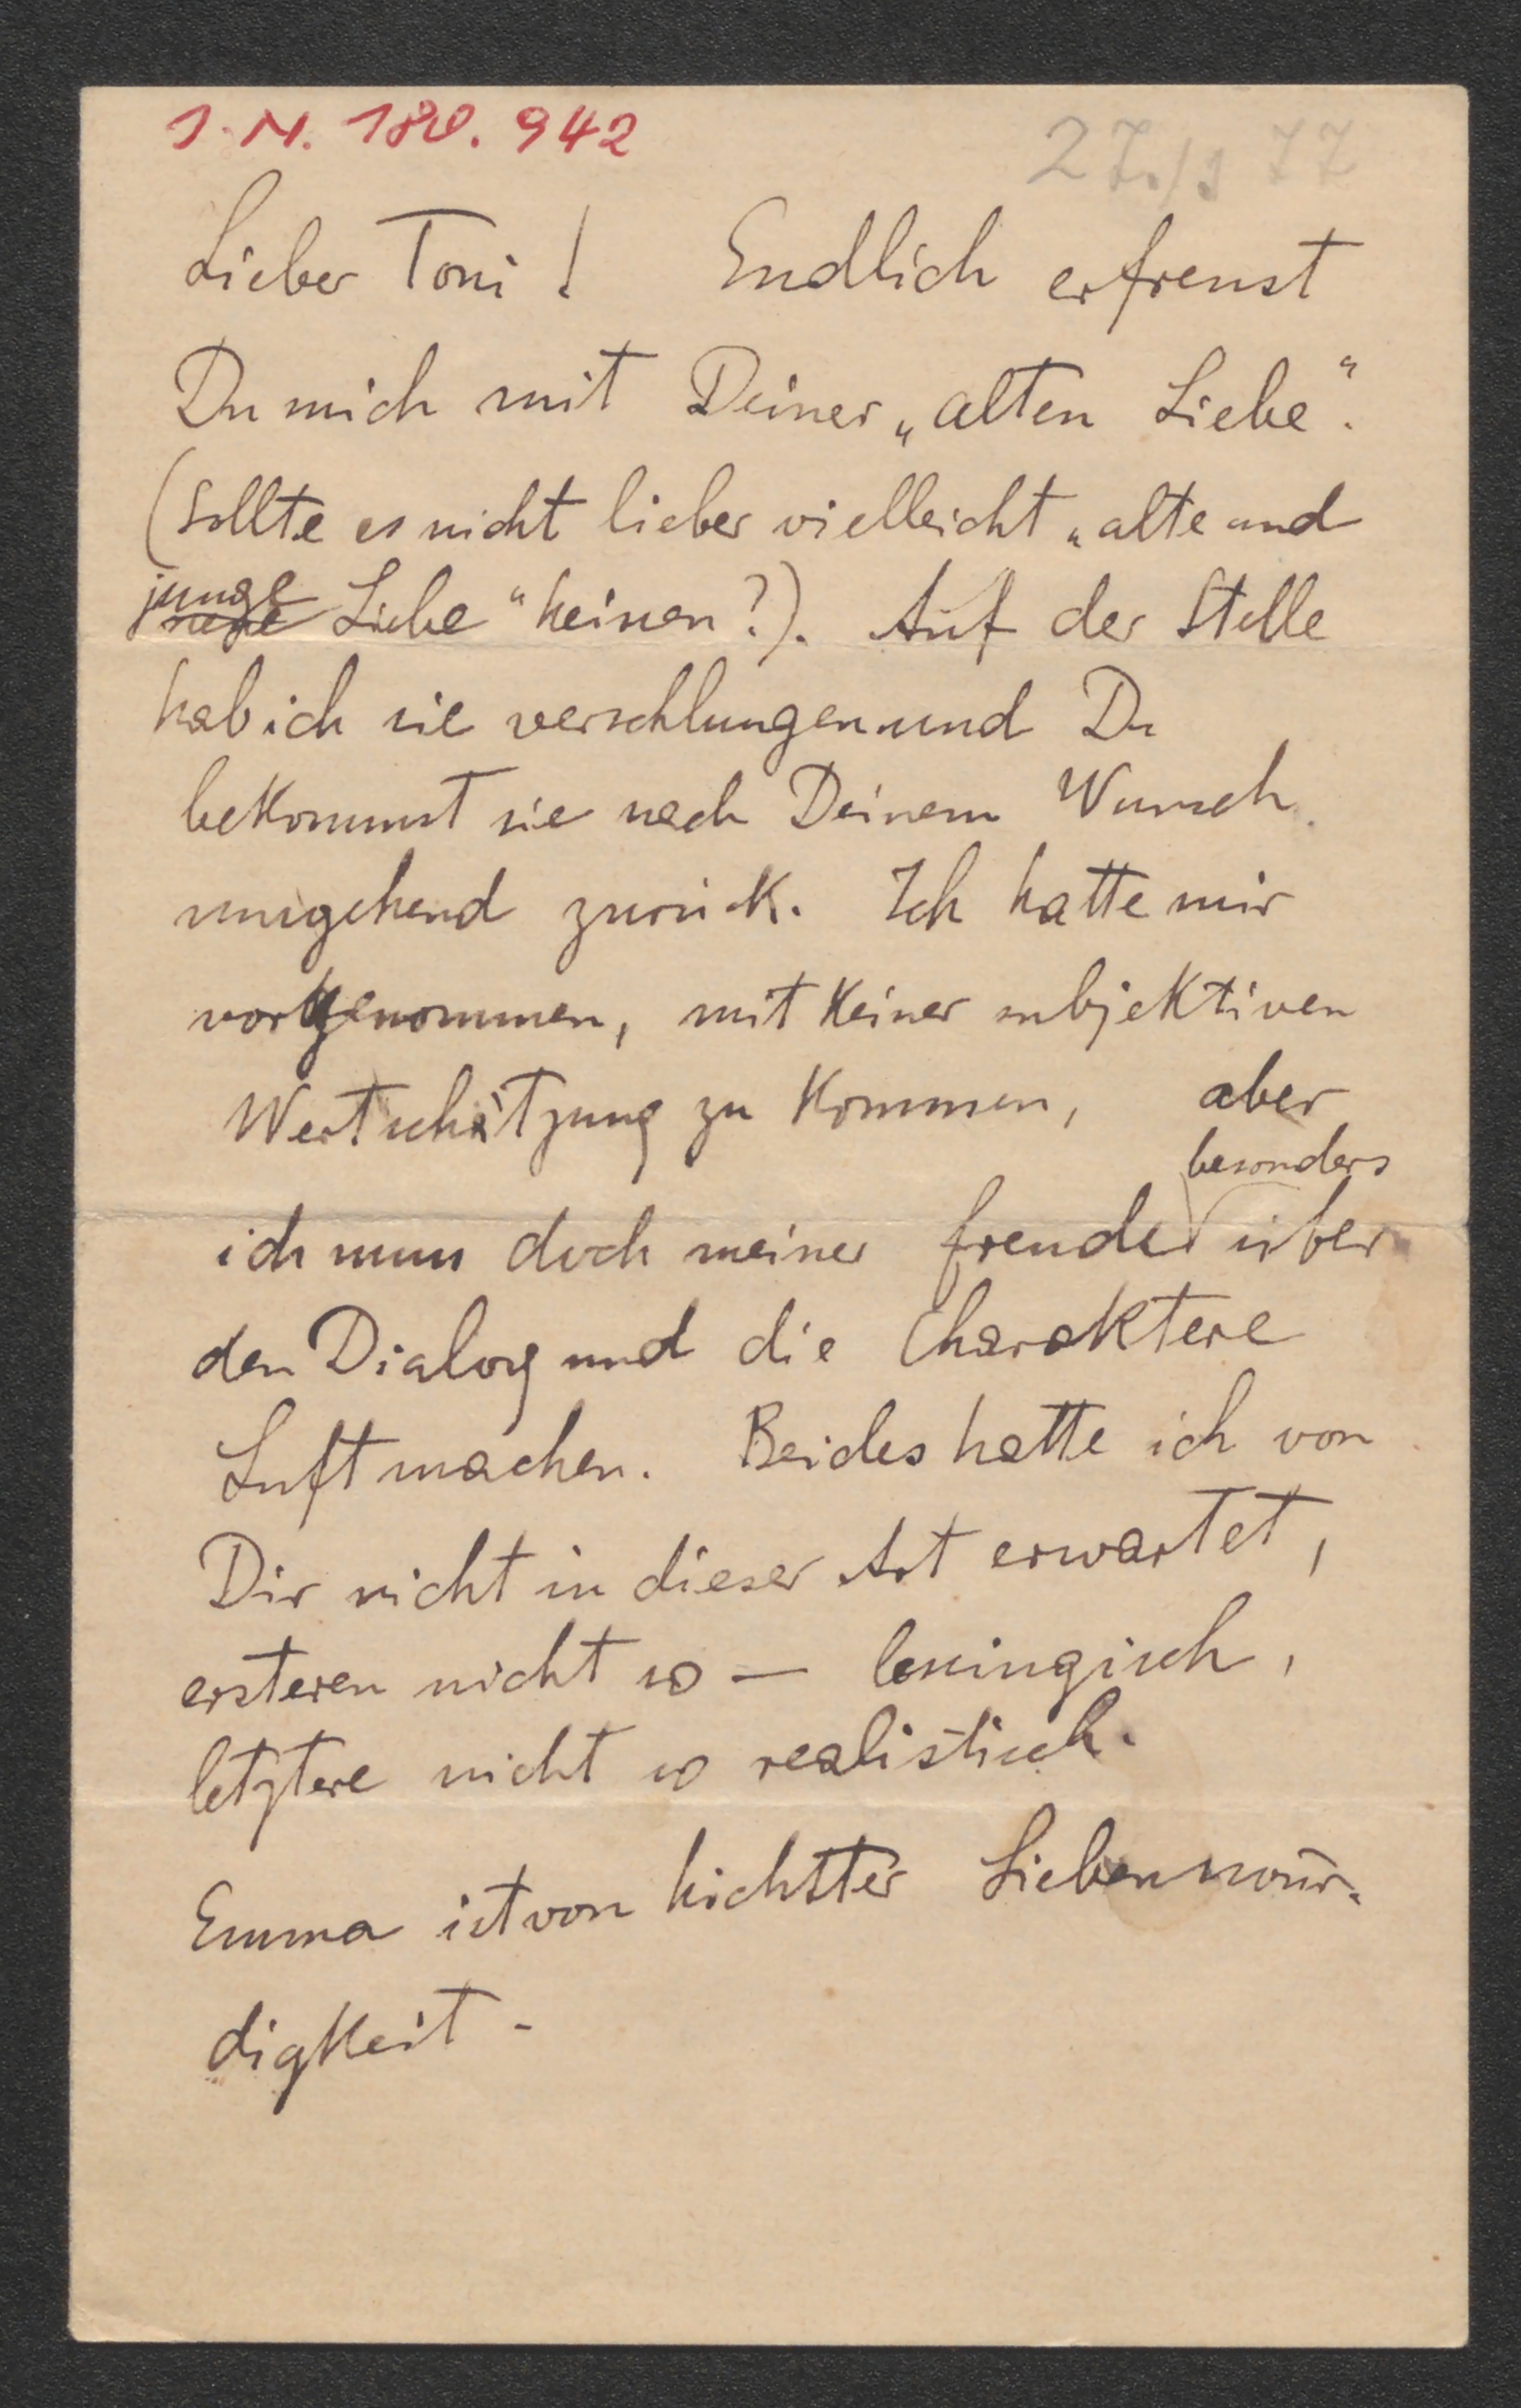 I. N. 180. 942
27./1 77
Lieber Toni! Endlich erfreust
Du mich mit Deiner „alten Liebe“.
(Sollte es nicht lieber vielleicht „alte und
junge
neue Liebe“ heissen?). Auf der Stelle
hab ich sie verschlungen und Du
bekommst sie nach Deinem Wunsch
umgehend zurück. Ich hatte mir
vorgenommen, mit keiner subjektiven
Wertschätzung zu kommen, aber
besonders
ich muss doch meiner Freude über
den Dialog und die Charaktere
Luft machen. Beides hatte ich von
Dir nicht in dieser Art erwartet,
ersteren nicht so — lessingisch,
letztere nicht so realistisch.
Emma ist von höchster Liebenswür-
digkeit.